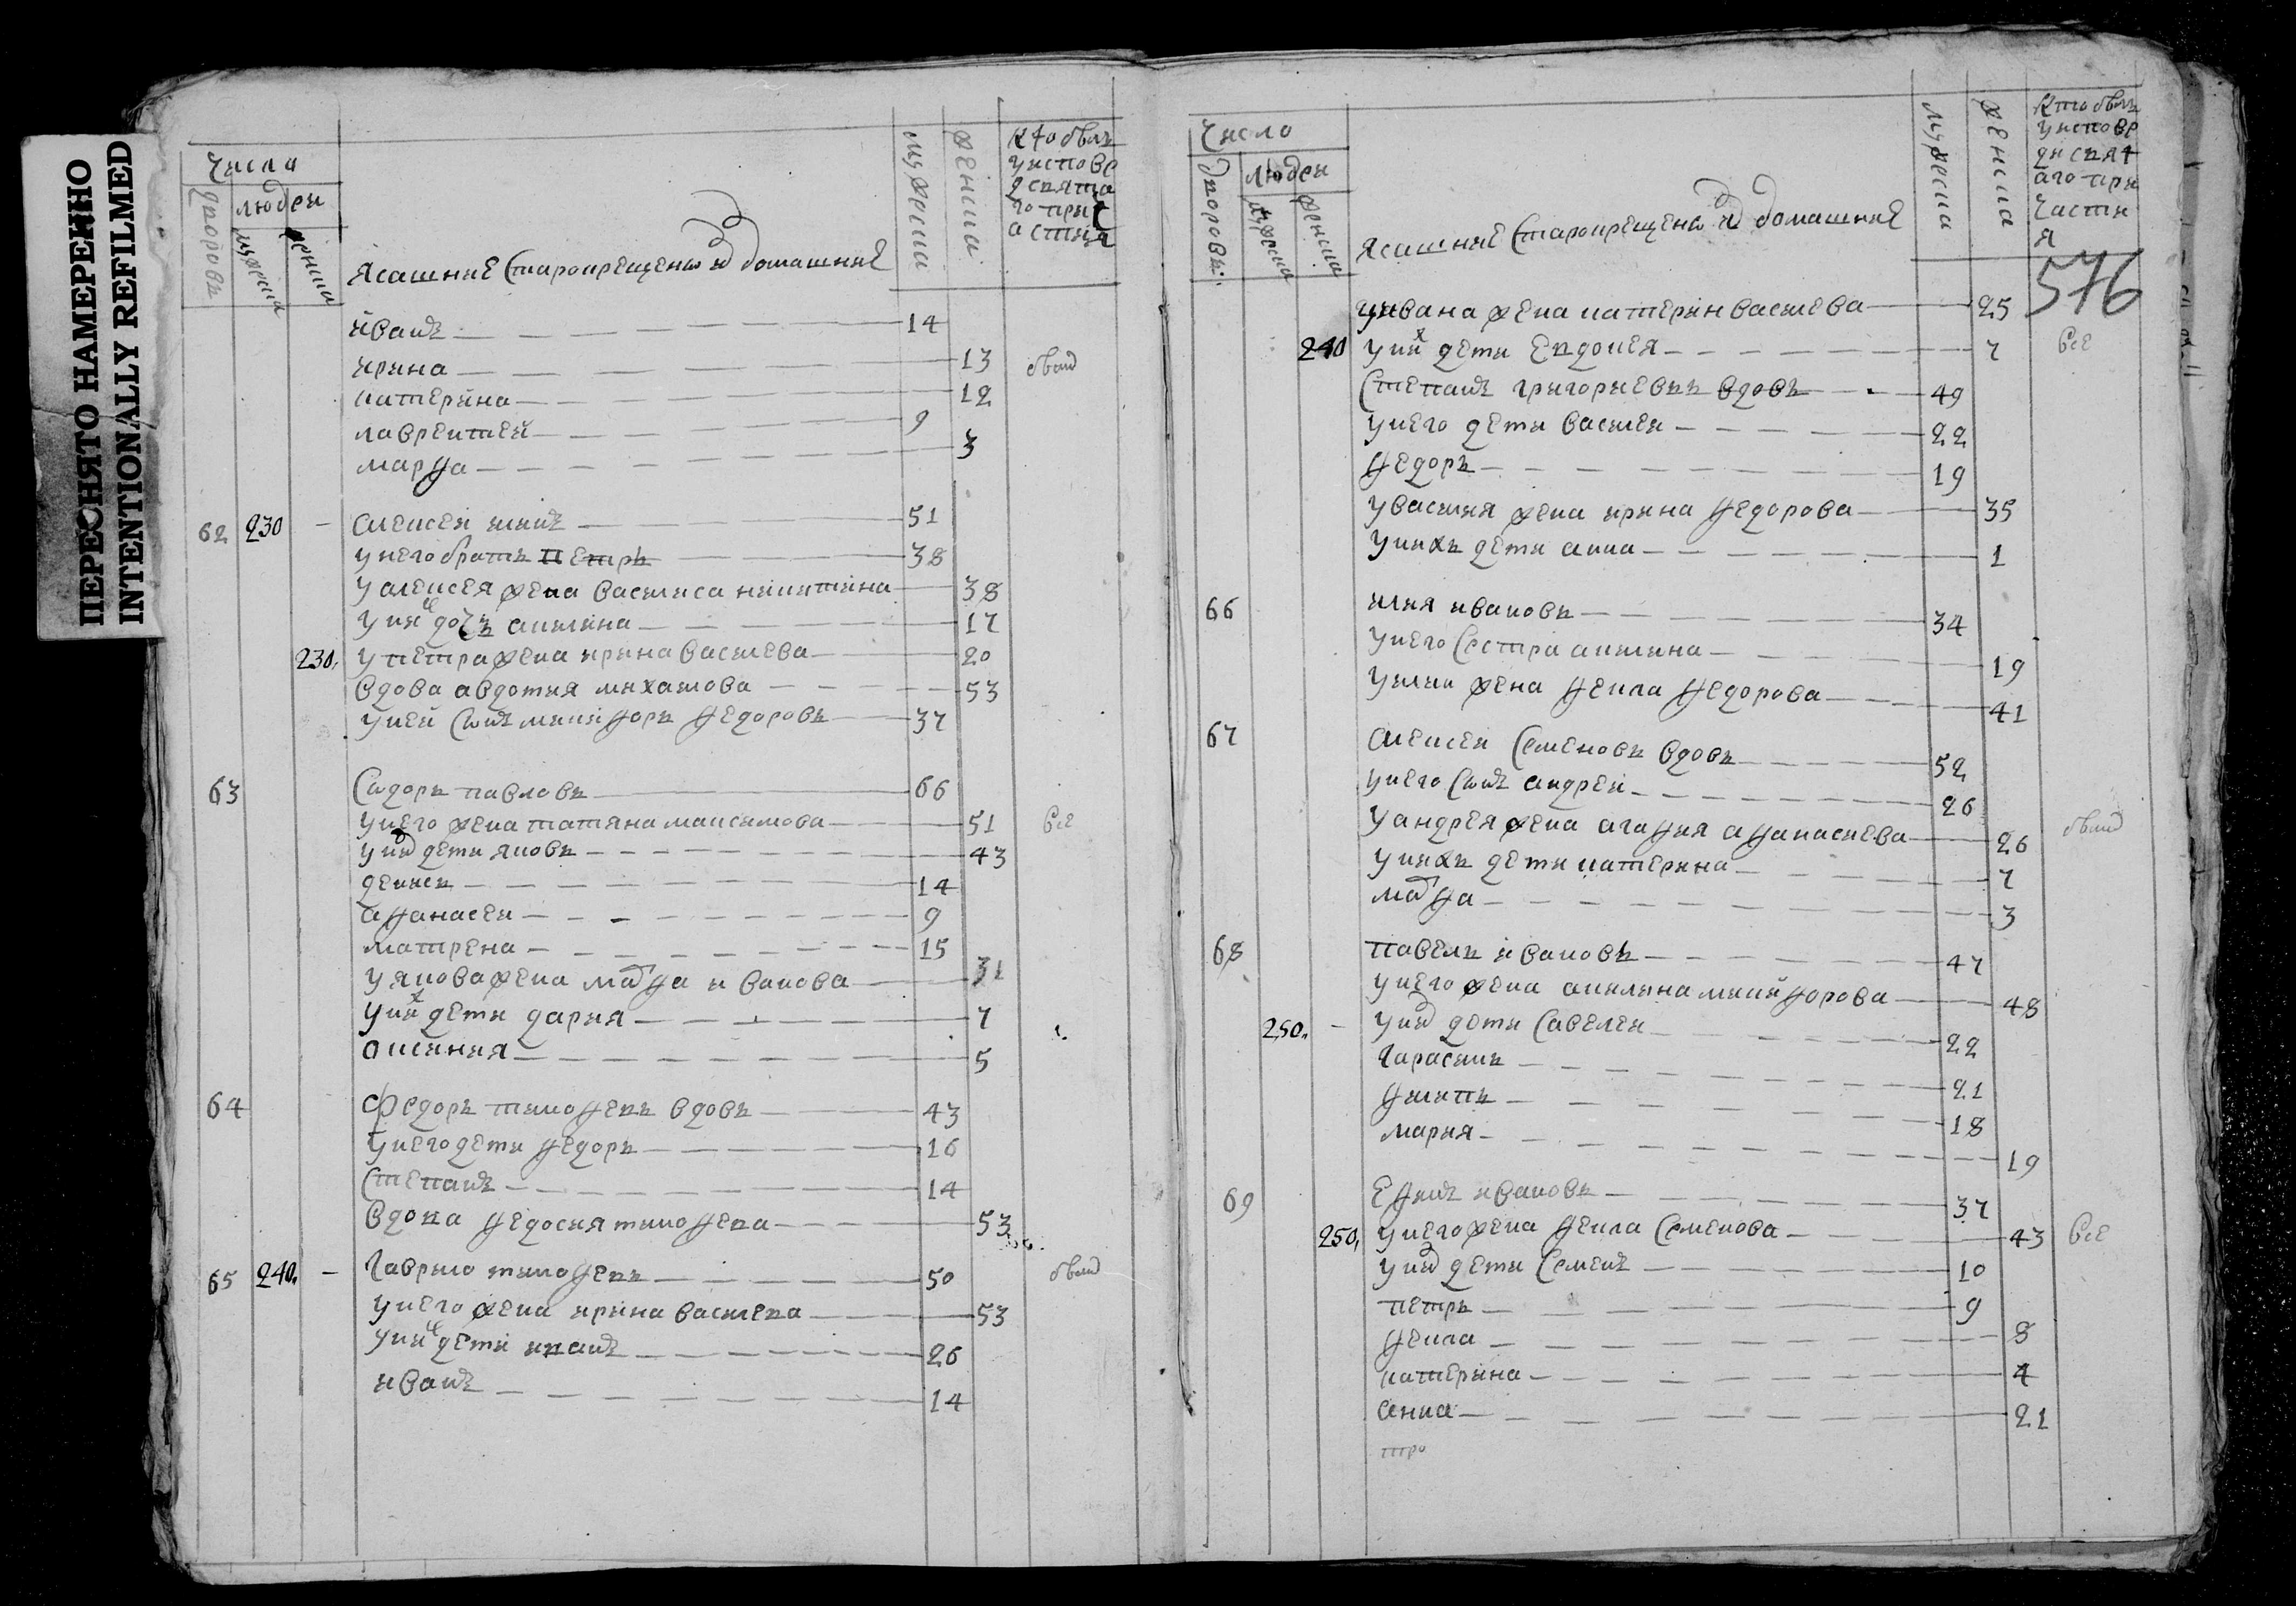 ПЕРЕСНЯТО НАМЕРЕННО
INTENTIONALLY REFILMED
Число
дворовъ
людеи
мужеска
женска
ясашние старокрещены и домашние
мужеска
женска
кто былъ
у испове
ди свята
го прич
астия
иванъ 14
ирина 13
катерина 12
лаврентей 9
марфа 3
62 230 алексеи
у него братъ петръ 38
у алексея жена василиса никитина 38
у них дочь акилина 17
230 у петра жена ирина васильева 20
вдова авдотия михаилова 53
у неи сынъ никифоръ федоровъ 37
63 сидоръ павловъ 66
у него жена татяна максимова 51 все
у них дети яковъ 43
денисъ 14
афанасеи 9
матрена 15
у якова жена марфа иванова 31
у них дети дария 7
оксиния 5
64 федоръ тимофеевъ вдовъ 43
у него дети федоръ 16
степанъ 14
вдова федосия тимофеева 53
65 240 гаврило тимофеевъ 50
у него жена ирина васильева 53
у них дети иванъ 26
иванъ 14
Число
дворовъ
людеи
мужеска
женска
ясашние старокрещены и домашние
мужеска
женска
кто былъ
у испове
ди свят
аго при
части
я
576
у ивана жена катерина васильева 25
240 у них дети евдокея 7 все
степанъ григориевъ вдовъ 49
у него дети василеи 22
федоръ 19
у василия жена ирина федорова 35
у нихъ дети анна 1
66 илия ивановъ 34
у него сестра акилина 19
у илии жена фекла федорова 41
67 алексеи семеновъ вдовъ 52
у него сынъ андреи 26
у андрея жена агафия афанасиева 26
у нихъ дети катерина 7
марфа 3
68 павелъ ивановъ 47
у него жена акилина никифорова 48
250 у них дети савелеи 22
гарасимъ 21
филипъ 18
мария 19
69 ефимъ ивановъ 37
250 у него жена фекла семенова 43 все
у них дети семенъ 10
петръ 9
фекла 8
катерина 4
анна 21